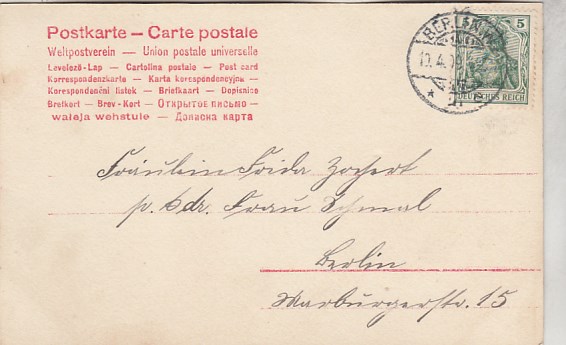 Postkarte — Carte postale
Weltpostverein — Union postale universelle
Levelező-Lap — Cartolina postale — Post card
Korrespondenzkarte — Karta korespondencyjna
Korespondenční lístek — Briefkaart — Dopisnice
Brefkort — Brev-Kort — Открытое письмо —
waleja wehstule — Дописна карта
BERLIN
5
DEUTSCHES REICH
Fräulein Frida Zochert
p. Adr. Frau Schmal
Berlin
Marburgerstr. 15